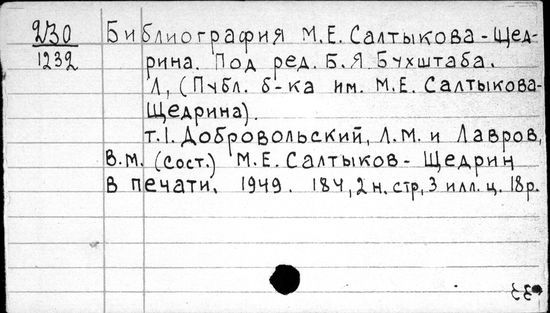 230
1232
Библиография М.Е. Салтыкова-Щед-
рина. Под ред. Б.Я Бухштаба.
Л, (Публ. б-ка им. М.Е. Салтыкова-
Щедрина).
т.1. Добровольский, Л.М. и Лавров,
В.М. (сост.) М.Е. Салтыков- Щедрин
в печати. 1949. 184, 2 н. стр, 3 илл. ц. 18р.